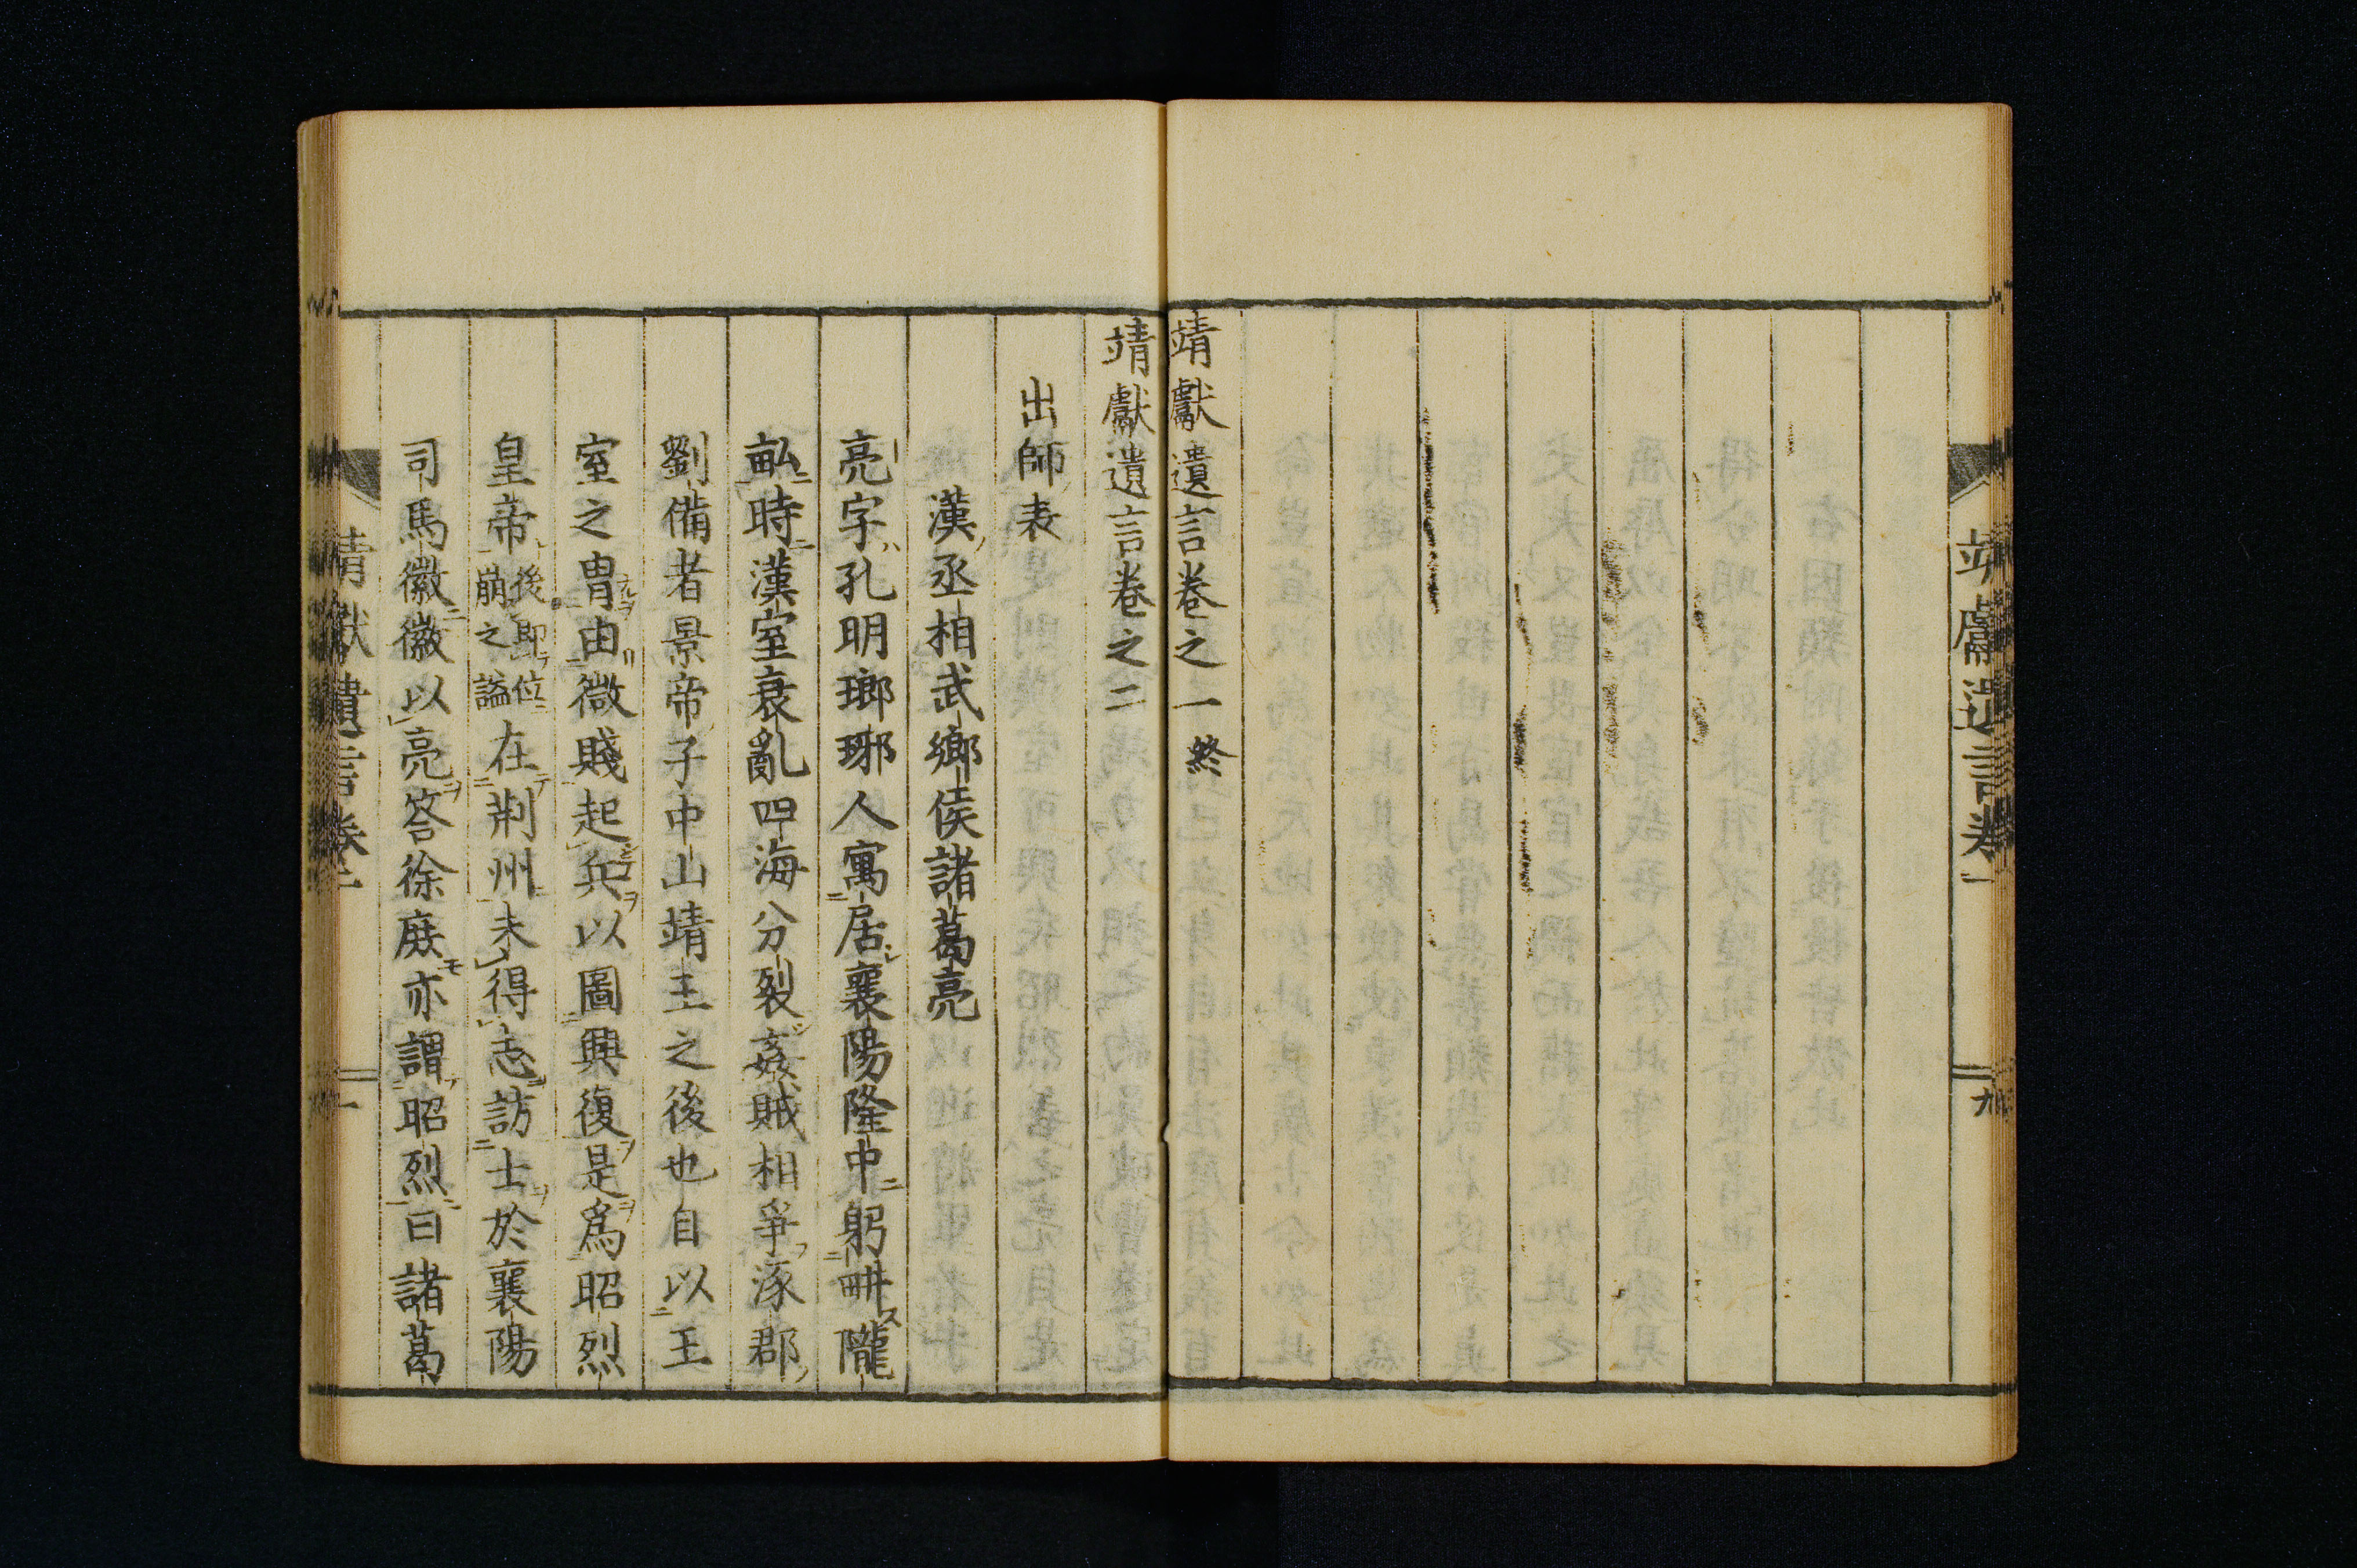 靖獻遺言卷一
九
靖獻遺言卷之一終
靖獻遺言卷之二
出師表
漢丞相武鄉侯諸葛亮
亮字孔明瑯琊人寓居襄陽隆中躬畊隴
畝時漢室衰亂四海分裂姦賊相爭涿郡
劉備者景帝子中山靖王之後也自以王
室之冑由微賤起兵以圖興復是爲昭烈
皇帝後即位崩之謚在荆州未得志訪士於襄陽
司馬徽徽以亮答徐庶亦謂昭烈曰諸葛
靖獻遺言卷二
一